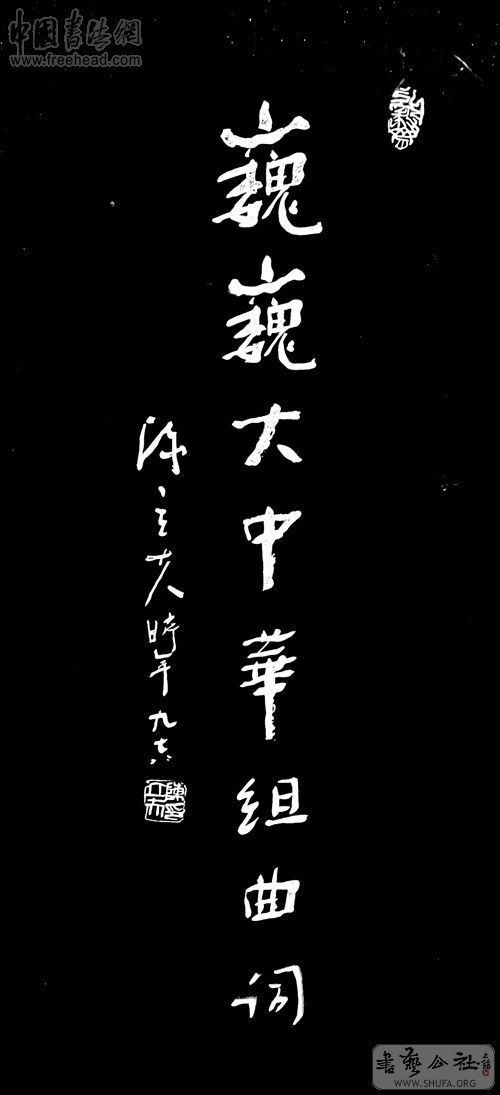 中國書法網
www.freehead.com
巍巍大中華组曲词
陳立夫時年九十六
陳立夫印
書藝公社
WWW.SHUFA.ORG